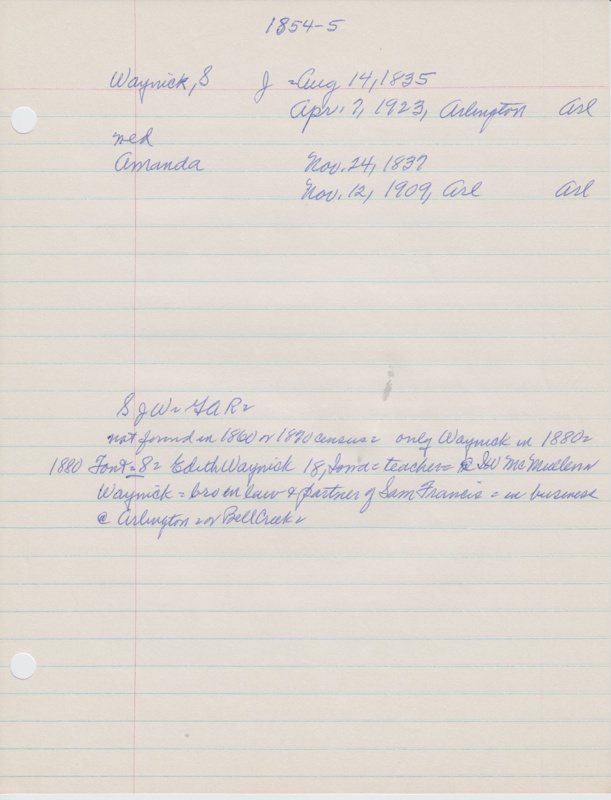 1854-5
Waynick, S J = Aug 14, 1835
Apr. 7, 1923, Arlington Arl
med
Amanda Nov. 24, 1837
Nov. 12, 1909, Arl Arl
S J W = GAR =
not found in 1860 or 1870 census = only Waynick in 1880 =
1880 Font = 8 = Edith Waynick 18, Iowa = teacher = @ McMullen
Waynick = bro en law & partner of Sam Francis = in business
@ Arlington or Bell Creek =